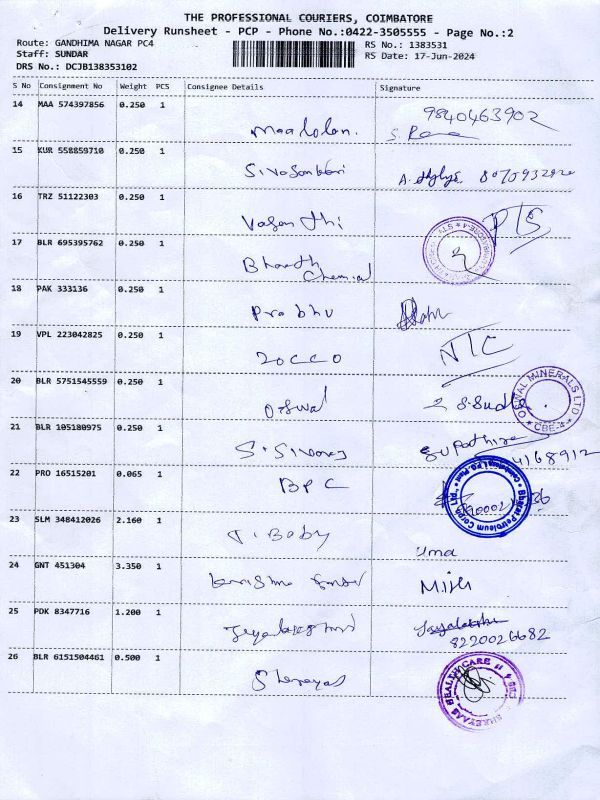 THE PROFESSIONAL COURIERS, COIMBATORE
Delivery Runsheet - PCP - Phone No.:0422-3505555 - Page No.:2
Route: GANDHIMA NAGAR PC4 RS No.: 1383531
Staff: SUNDAR RS Date: 17-Jun-2024
DRS No.: DCJB138353102
S No Consignment No Weight PCS Consignee Details Signature
14 MAA 574397856 0.250 1 9840463902
15 KUR 558859710 0.250 1
16 TRZ 51122303 0.250 1
Vasanthi
17 BLR 695395762 0.250 1
Bharath
Chemical
18 PAK 333136 0.250 1
Prabhu
19 VPL 223042825 0.250 1
ZOCCO NTC
20 BLR 5751545559 0.250 1
OSWAL MINERALS LTD
CBE-4
21 BLR 105180975 0.250 1
22 PRO 16515201 0.065 1
BPC Bharat Petroleum Corpn. Ltd.
23 SLM 348412026 2.160 1
T. Baby Uma
24 GNT 451304 3.350 1
25 PDK 8347716 1.200 1
8220026682
26 BLR 6151504461 0.500 1
Shreyas SHREYAAS HEALTH CARE